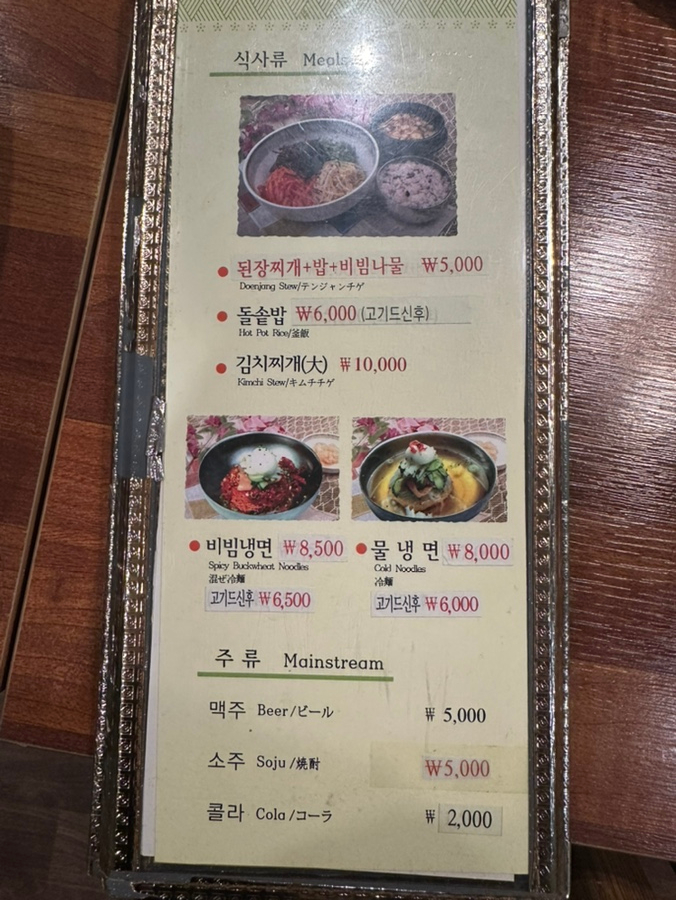 식사류 Meals
된장찌개+밥+비빔나물 ₩5,000
Doenjang Stew/テンジャンチゲ
돌솥밥 ₩6,000 (고기드신후)
Hot Pot Rice/釜飯
김치찌개(大) ₩10,000
Kimchi Stew/キムチチゲ
비빔냉면 ₩8,500
Spicy Buckwheat Noodles
混ぜ冷麺
고기드신후 ₩6,500
물 냉 면 ₩8,000
Cold Noodles
冷麺
고기드신후 ₩6,000
주 류 Mainstream
맥주 Beer/ビール ₩ 5,000
소주 Soju/焼酎 ₩5,000
콜라 Cola/コーラ ₩ 2,000